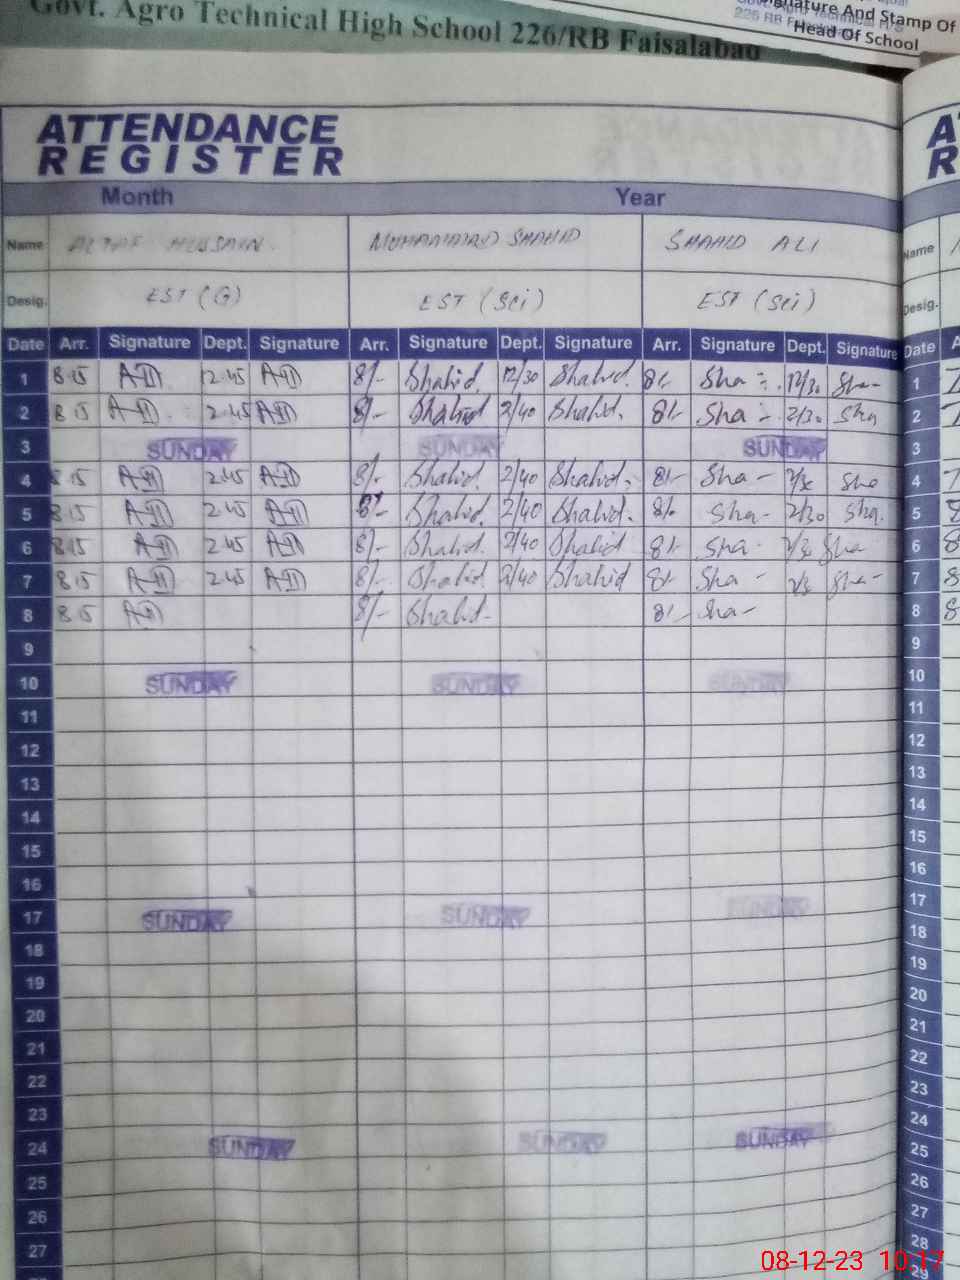 Govt. Agro Technical High School 226/RB Faisalabad
Signature And Stamp Of
Head Of School
226 RB
ATTENDANCE
REGISTER
Month Year
Name ALTAF HUSSAIN MUHAMMAD SHAHID SHAHID ALI Name
Desig. EST (G) EST (Sci) EST (Sci) Desig.
Date Arr. Signature Dept. Signature Arr. Signature Dept. Signature Arr. Signature Dept. Signature Date
1 8 15 12.45 8/- Shahid. 12/30 Shahid. 8/- Sha 12/30 Sha 1
2 8 15 2.45 8/- Shahid 2/40 Shahid. 8/- Sha 2/30 Sha 2
3 SUNDAY SUNDAY SUNDAY 3
4 8 15 2.45 8/- Shahid. 2/40 Shahid. 8/- Sha - Sha 4
5 8 15 2.45 8/- Shahid. 2/40 Shahid. 8/- Sha- 2/30 Sha. 5
6 8.15 2.45 8/- Shahid. 2/40 Shahid 8/- Sha - Sha 6
7 8 15 2.45 8/- Shahid 2/40 Shahid 8/- Sha - Sha- 7
8 8 15 8/- Shahid- 8/- Sha- 8
9 9
10 SUNDAY SUNDAY SUNDAY 10
11 11
12 12
13 13
14 14
15 15
16 16
17 SUNDAY SUNDAY SUNDAY 17
18 18
19 19
20 20
21 21
22 22
23 23
24 SUNDAY SUNDAY SUNDAY 24
25 25
26 26
27 27
28
29
08-12-23 10:17